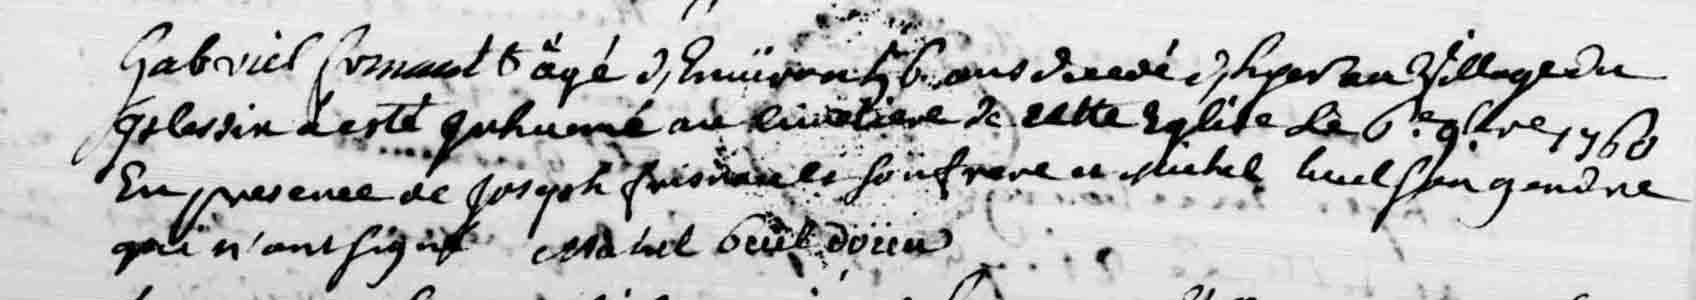 Gabriel âgé d'Environ 56 ans décédé d'hyer au Village du
a esté Inhumé au Cimetiere de cette Eglise Le 6.e 9bre 1760
En presence de Joseph son frere et Michel huel son gendre
qui n'ont signé